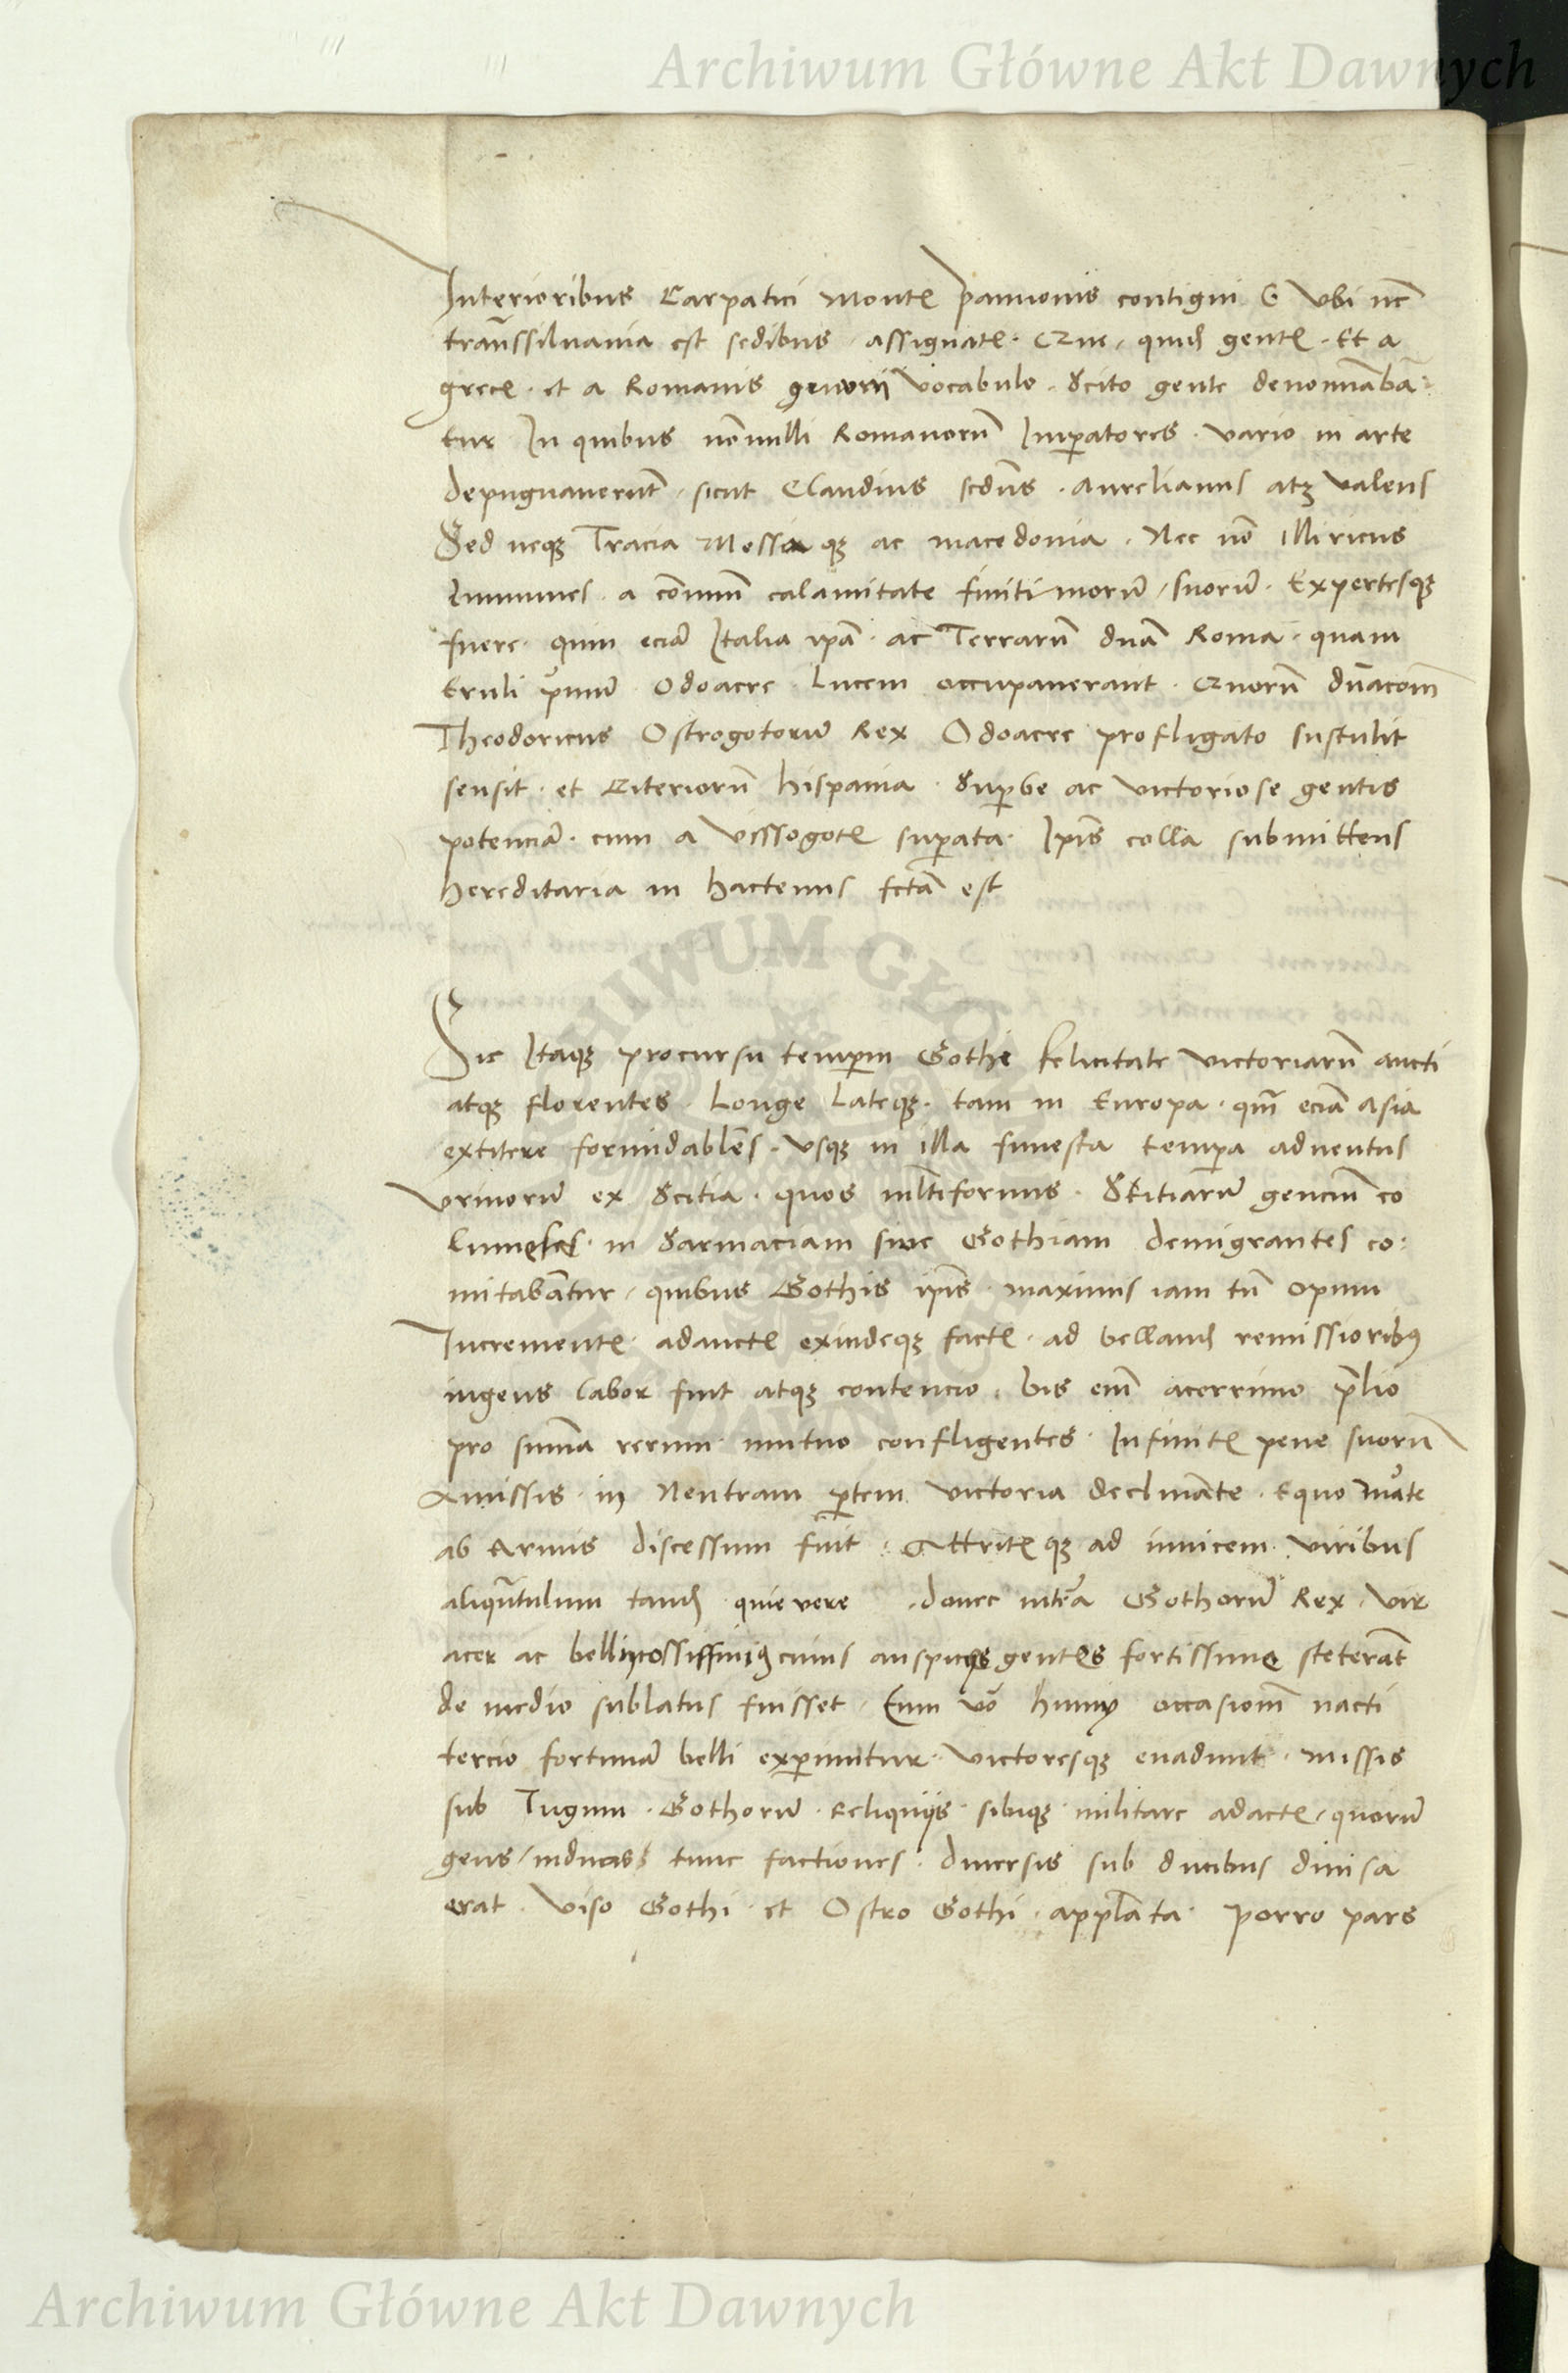 Archiwum Główne Akt Dawnych
Interioribus Carpatici Monte Pannonis contigui G Vbi nc
transsiluania est sedibus assignate. Que quid gente. Et a
grece. et a Romanis vocabulo. Scito gente denominaba:
tur In quibus nonnulli Romanorum Imperatores. vario in arte
depugnauerunt. sicut Claudius scdus. Aurelianus atq valens
Sed neq Tracia Messia q ac macedonia. Nec no Illiricus
Immunes. a comuni calamitate finitimorum suorum. Expertesq
fuere. quin ecia Italia ipa. ac Terrarum dna Roma. quam
Eruli primu Odoacre Lucem occupauerant. Quorum
Theodoricus Ostrogotorum Rex Odoacre profligato sustulit
sensit. et Citeriorum hispania. Superbe ac victoriose gentis
potencia. cum a Vissogote superata. Ipis colla submittens
hereditaria in hactenus fcta est
Sic Itaq procursu temperm Gothi felicitate victoriarum aucti
atq florentes. Longe Lateq. tam in Europa. qm ecia Asia
extitere formidables. vsq in illa funesta tempora aduentus
Vrinorum ex Scitia. quos mltiformis. Skitiarum gencium co
in Sarmaciam siue Gothiam demigrantes co:
mitabatur. quibus Gothis ipis. maximis iam tu opum
Incremente. adaucte exindeq facte. ad belland remissioribus
ingens labor fuit atq contencio. bis eni acerrimo prelio
pro summa rerum. mutuo confligentes. Infinite pene suorum
Amissis. in Neutram partem victoria declinante. Equo marte
ab Armis discessum fuit. Attrite q ad inuicem viribus
aliquantulum tand. quieuere. donec Gothorum Rex. vir
acer ac cuius auspicijs gentes fortissime steterat
de medio sublatus fuisset. Eum vo hunij occasionem nacti
tercio fortunam belli experiuntur. victoresq euadunt. missis
sub Iugum. Gothorum. Reliquijs. sibiq. militare adacte. quorum
gens induas tunc factiones. diuersis sub ducibus diuisa
erat. Viso Gothi. et Ostro Gothi. appllata. Porro pars
Archiwum Główne Akt Dawnych